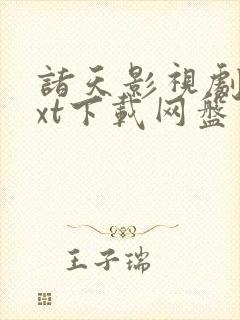 諸天影視劇t
xt下載网盤
王子瑞